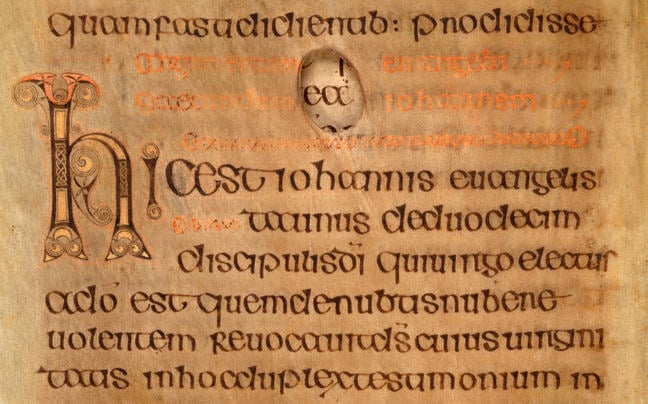 quam fastidientib: prodidisse
iohannem
hic est iohannis euangelis
ta unus de duodecim
discipulis dī qui uirgo electus
a dō est quem de nubtis nubere
uolentem reuocauit ds̄ cuius uirgini
tatis in hoc duplex testimonium in